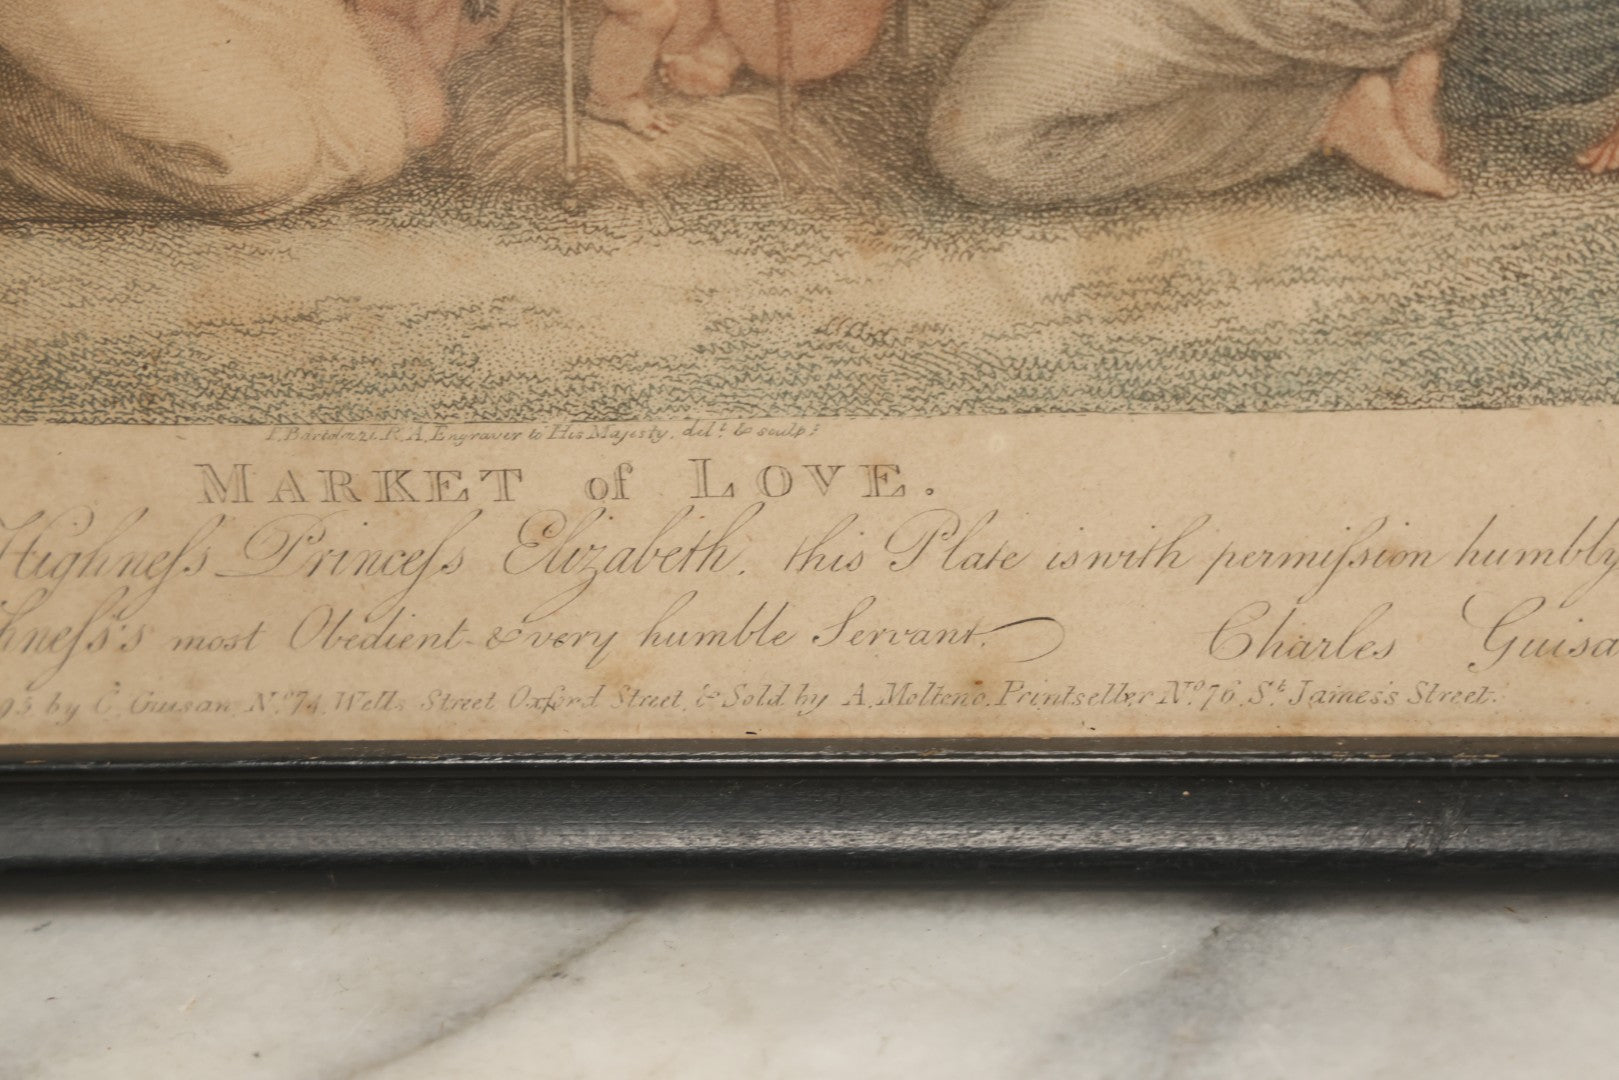 F. Bartolozzi R.A. Engraver to His Majesty, delt. & sculpt.
MARKET of LOVE.
Highneſs Princeſs Elizabeth, this Plate is with permiſsion humbly
hneſs's most Obedient & very humble Servant, Charles Guisa
95 by C. Guisan No. 74 Wells Street Oxford Street, & Sold by A. Molteno, Printseller No. 76, St. James's Street.